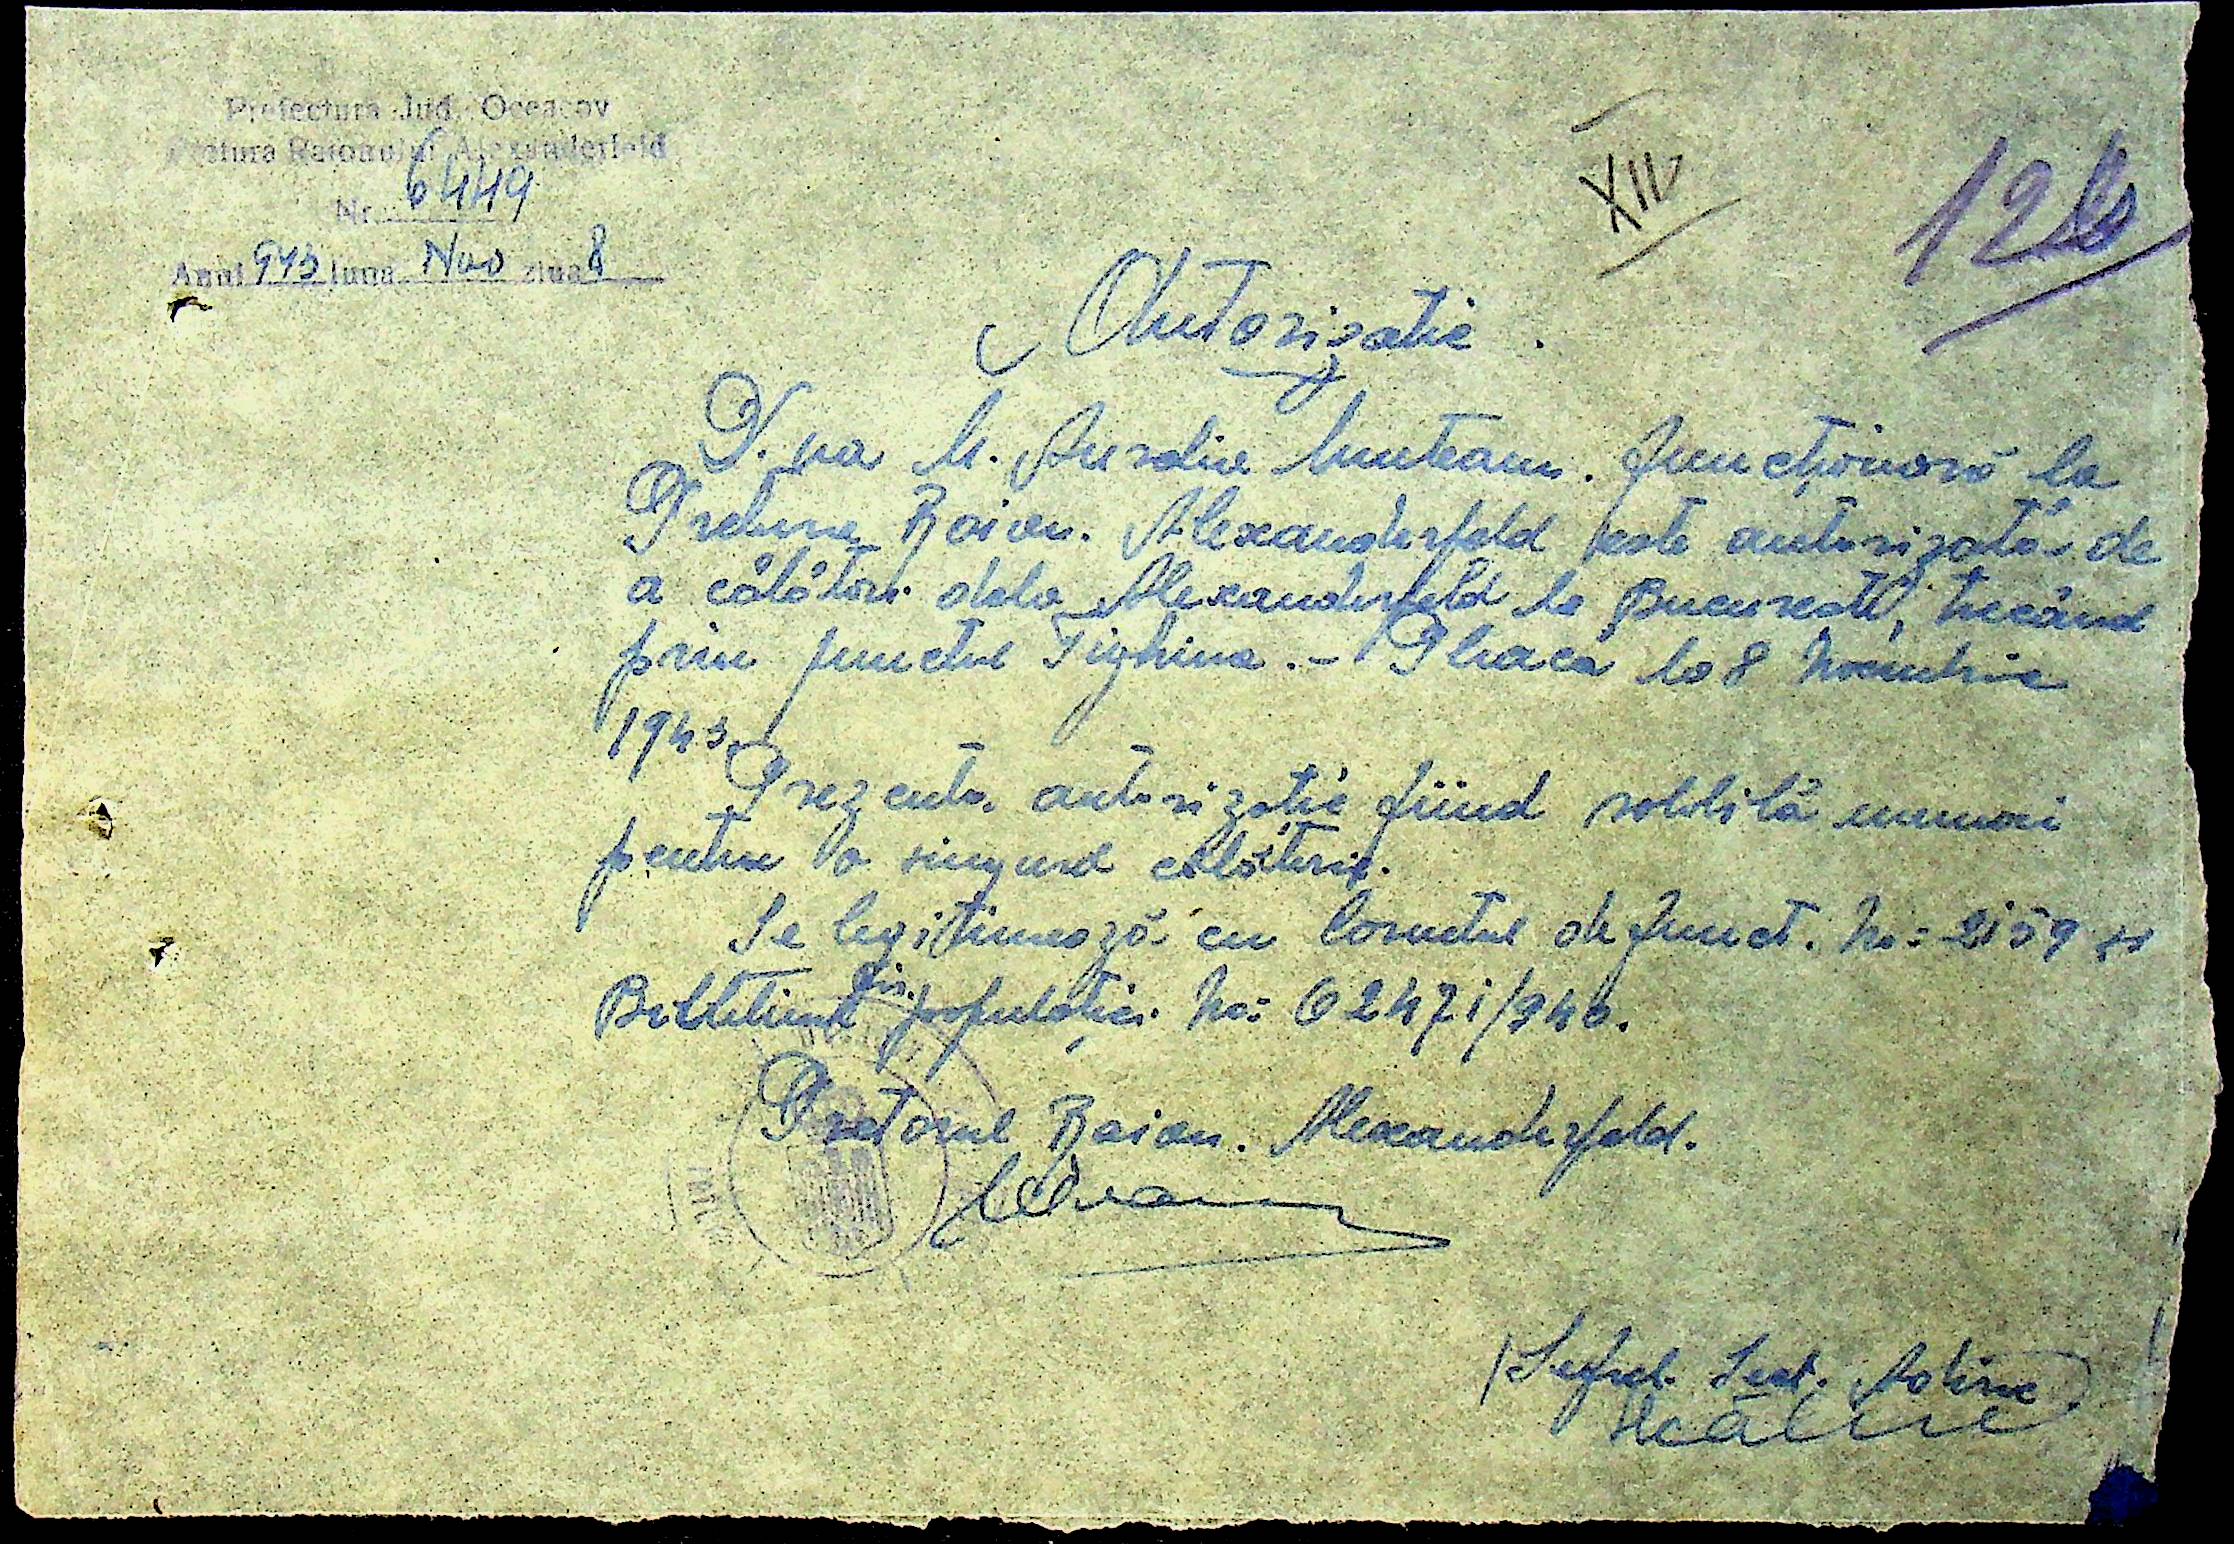 Prefectura Jud. Oceacov
Pretura Raionului Alexanderfeld
Nr. 6449
Anul 943 luna Nov ziua 8
XII
Autorizatie.
D.na M. Aurelia Munteanu. funcționară la
Pretura Raion. Alexanderfeld este autorizată de
a călători dela Alexanderfeld la Bucuresti, trecând
prin punctul Tighina. - Pleacă la 8 Noembrie
1943.
Prezenta autorizatie fiind valabilă numai
pentru o singură călătorie.
Se legitimează cu Carnetul de funct. No: 2159 si
Biletul populatiei No: 62471/940.
Pretorul Raion. Alexanderfeld.